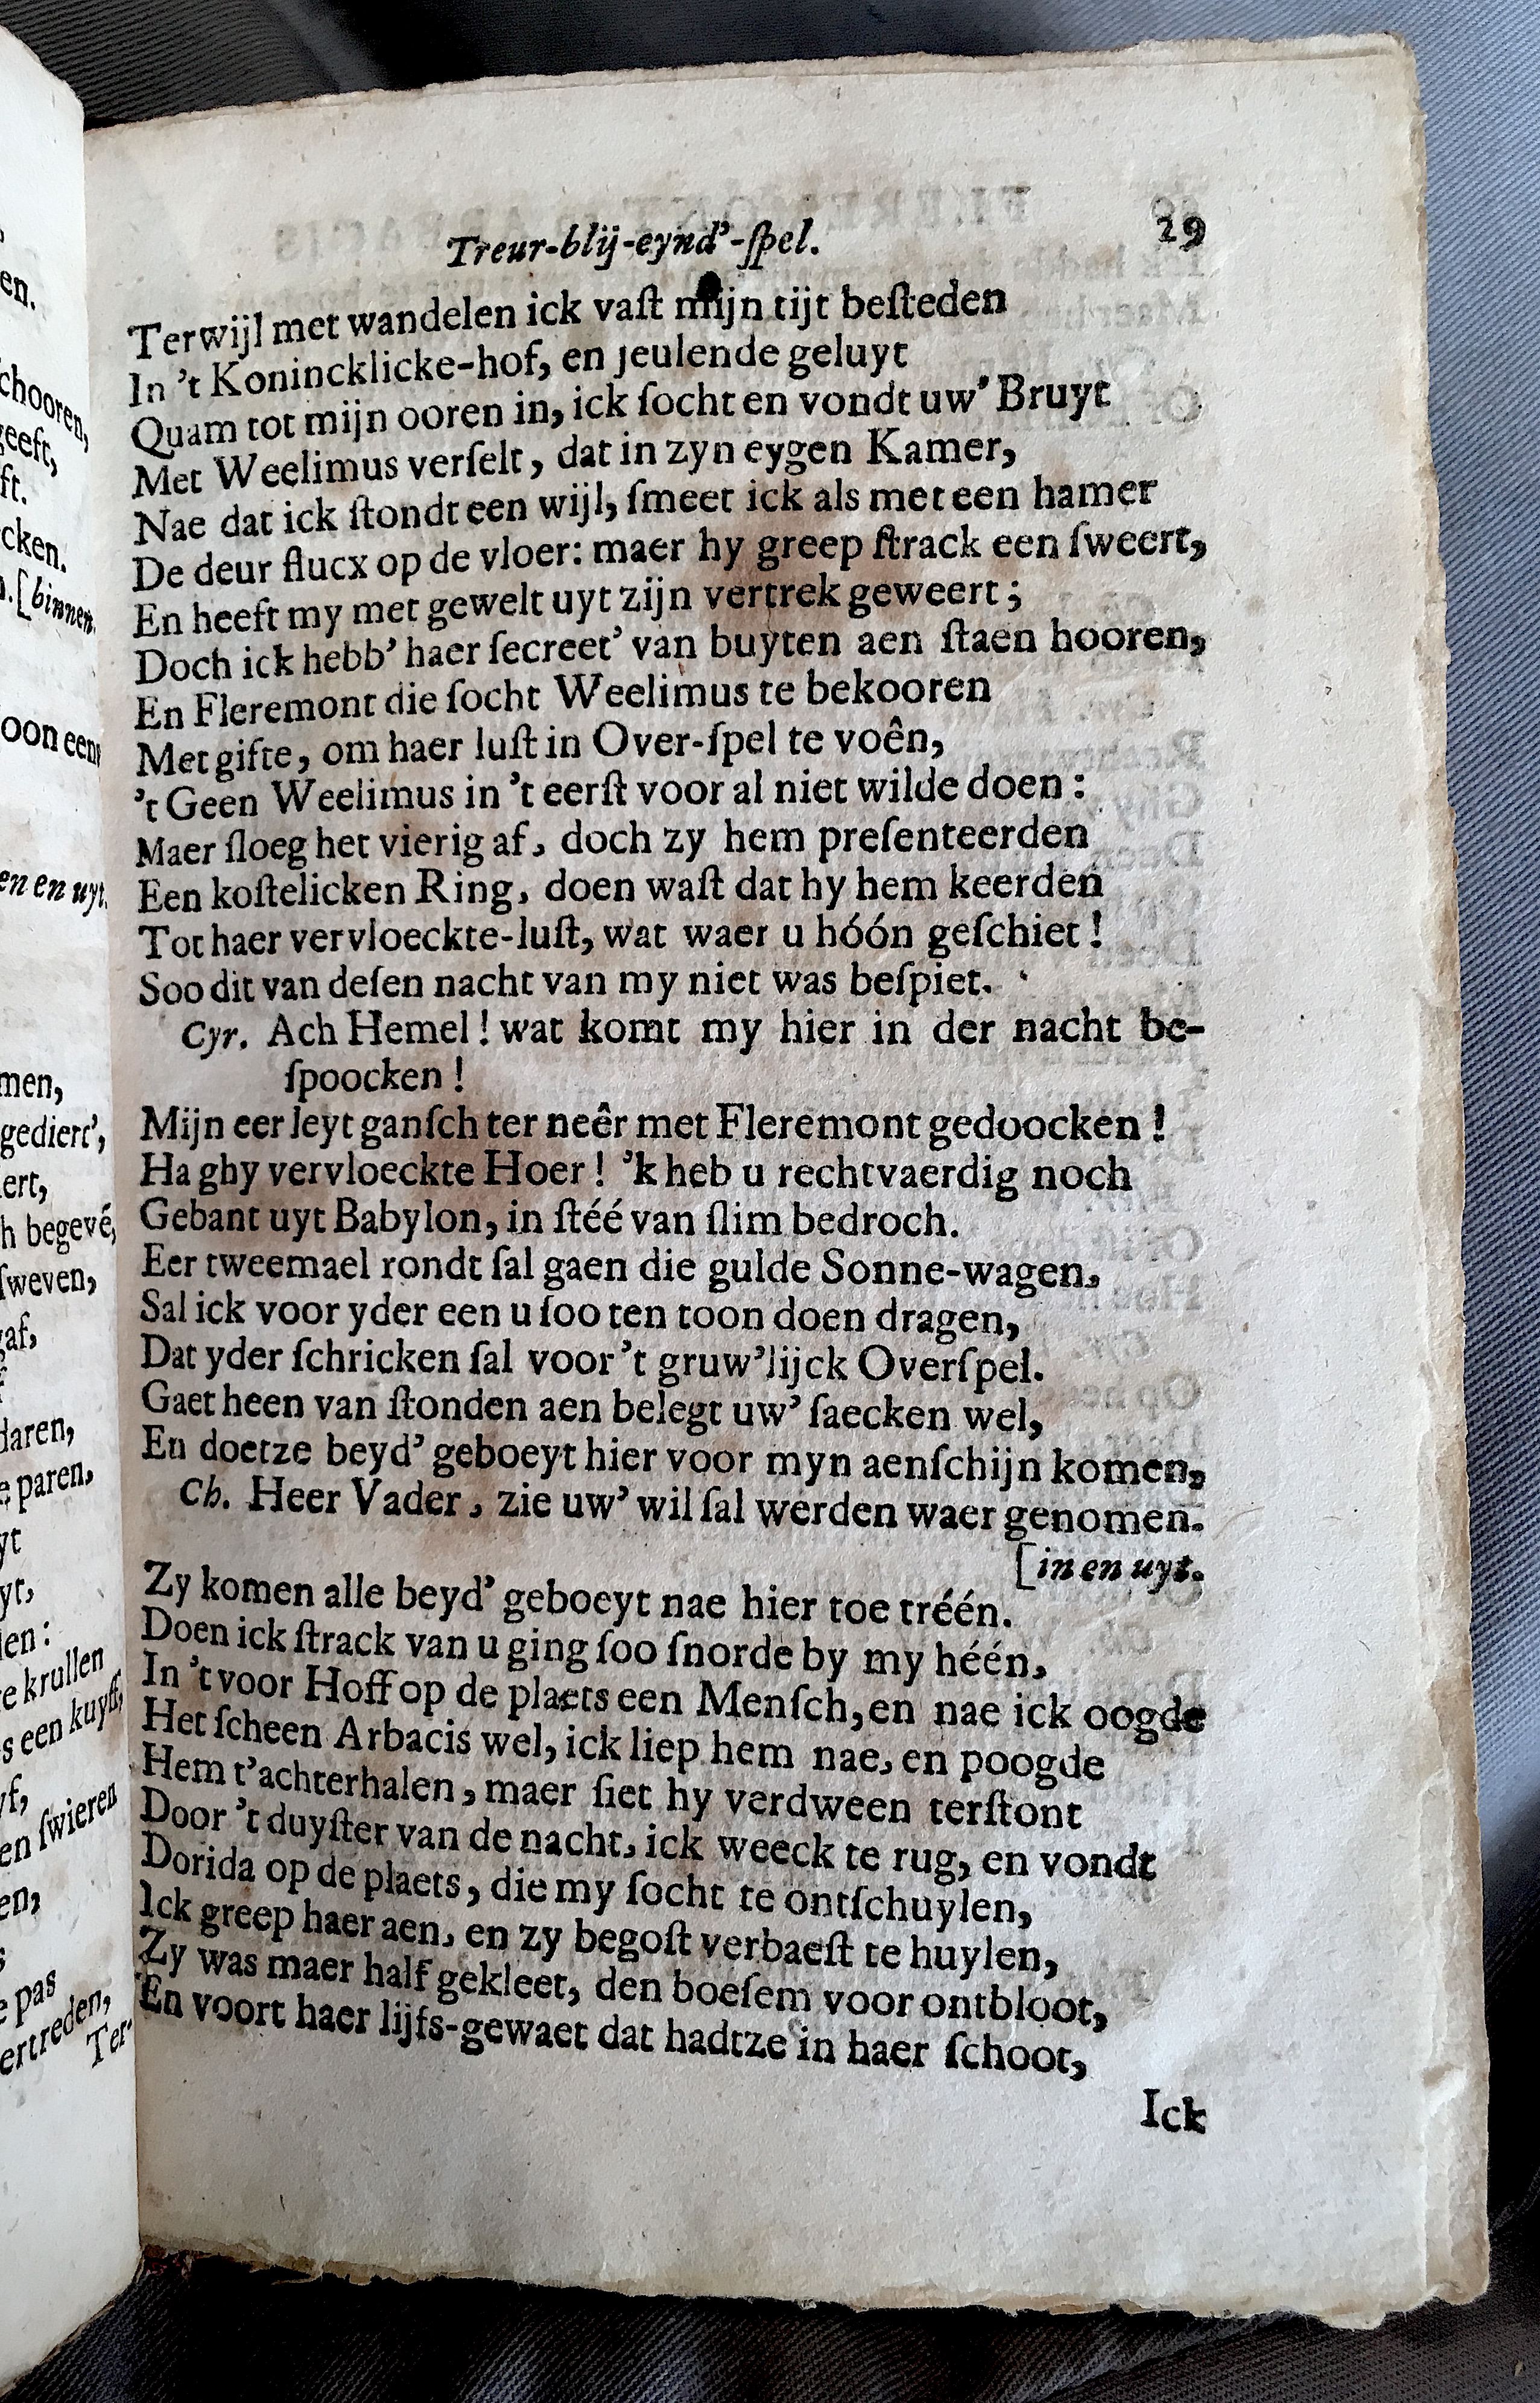 Treur-blij-eynd’-ſpel. 29
Terwijl met wandelen ick vaſt mijn tijt beſteden
In ’t Konincklicke-hof, en jeulende geluyt
Quam tot mijn ooren in, ick ſocht en vondt uw’ Bruyt
Met Weelimus verſelt, dat in zyn eygen Kamer,
Nae dat ick ſtondt een wijl, ſmeet ick als met een hamer
De deur flucx op de vloer: maer hy greep ſtrack een ſweert,
En heeft my met gewelt uyt zijn vertrek geweert;
Doch ick hebb’ haer ſecreet’ van buyten aen ſtaen hooren,
En Fleremont die ſocht Weelimus te bekooren
Met gifte, om haer luſt in Over-ſpel te voên,
’t Geen Weelimus in ’t eerſt voor al niet wilde doen:
Maer ſloeg het vierig af, doch zy hem preſenteerden
Een koſtelicken Ring, doen waſt dat hy hem keerden
Tot haer vervloeckte-luſt, wat waer u hóón geſchiet!
Soo dit van deſen nacht van my niet was beſpiet.
Cyr. Ach Hemel! wat komt my hier in der nacht be-
ſpoocken!
Mijn eer leyt ganſch ter neêr met Fleremont gedoocken!
Ha ghy vervloeckte Hoer! ’k heb u rechtvaerdig noch
Gebant uyt Babylon, in ſtéé van ſlim bedroch.
Eer tweemael rondt ſal gaen die gulde Sonne-wagen,
Sal ick voor yder een u ſoo ten toon doen dragen,
Dat yder ſchricken ſal voor ’t gruw’lijck Overſpel.
Gaet heen van ſtonden aen belegt uw’ ſaecken wel,
En doetze beyd’ geboeyt hier voor myn aenſchijn komen,
Ch. Heer Vader, zie uw’ wil ſal werden waer genomen.
[in en uyt.
Zy komen alle beyd’ geboeyt nae hier toe tréén.
Doen ick ſtrack van u ging ſoo ſnorde by my héén,
In ’t voor Hoff op de plaets een Menſch, en nae ick oogde
Het ſcheen Arbacis wel, ick liep hem nae, en poogde
Hem t’achterhalen, maer ſiet hy verdween terſtont
Door ’t duyſter van de nacht, ick weeck te rug, en vondt
Dorida op de plaets, die my ſocht te ontſchuylen,
Ick greep haer aen, en zy begoſt verbaeſt te huylen,
Zy was maer half gekleet, den boeſem voor ontbloot,
En voort haer lijfs-gewaet dat hadtze in haer ſchoot,
Ick